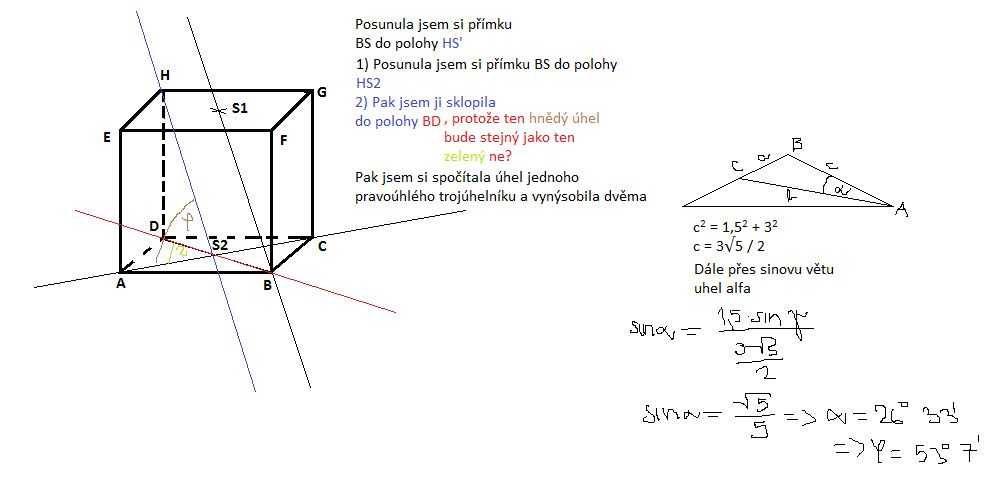 Posunula jsem si přímku
BS do polohy HS'
1) Posunula jsem si přímku BS do polohy
HS2
2) Pak jsem ji sklopila
do polohy BD , protože ten hnědý úhel
bude stejný jako ten
zelený ne?
Pak jsem si spočítala úhel jednoho
pravoúhlého trojúhelníku a vynýsobila dvěma
H
G
S1
E
F
φ
D
S2
C
A
B
B
C a c
b α
A
c² = 1,5² + 3²
c = 3√5 / 2
Dále přes sinovu větu
uhel alfa
sinα = 1,5 · sin γ / 3√5 / 2
sinα = √5 / 5 => α = 26° 33'
=> φ = 53° 7'